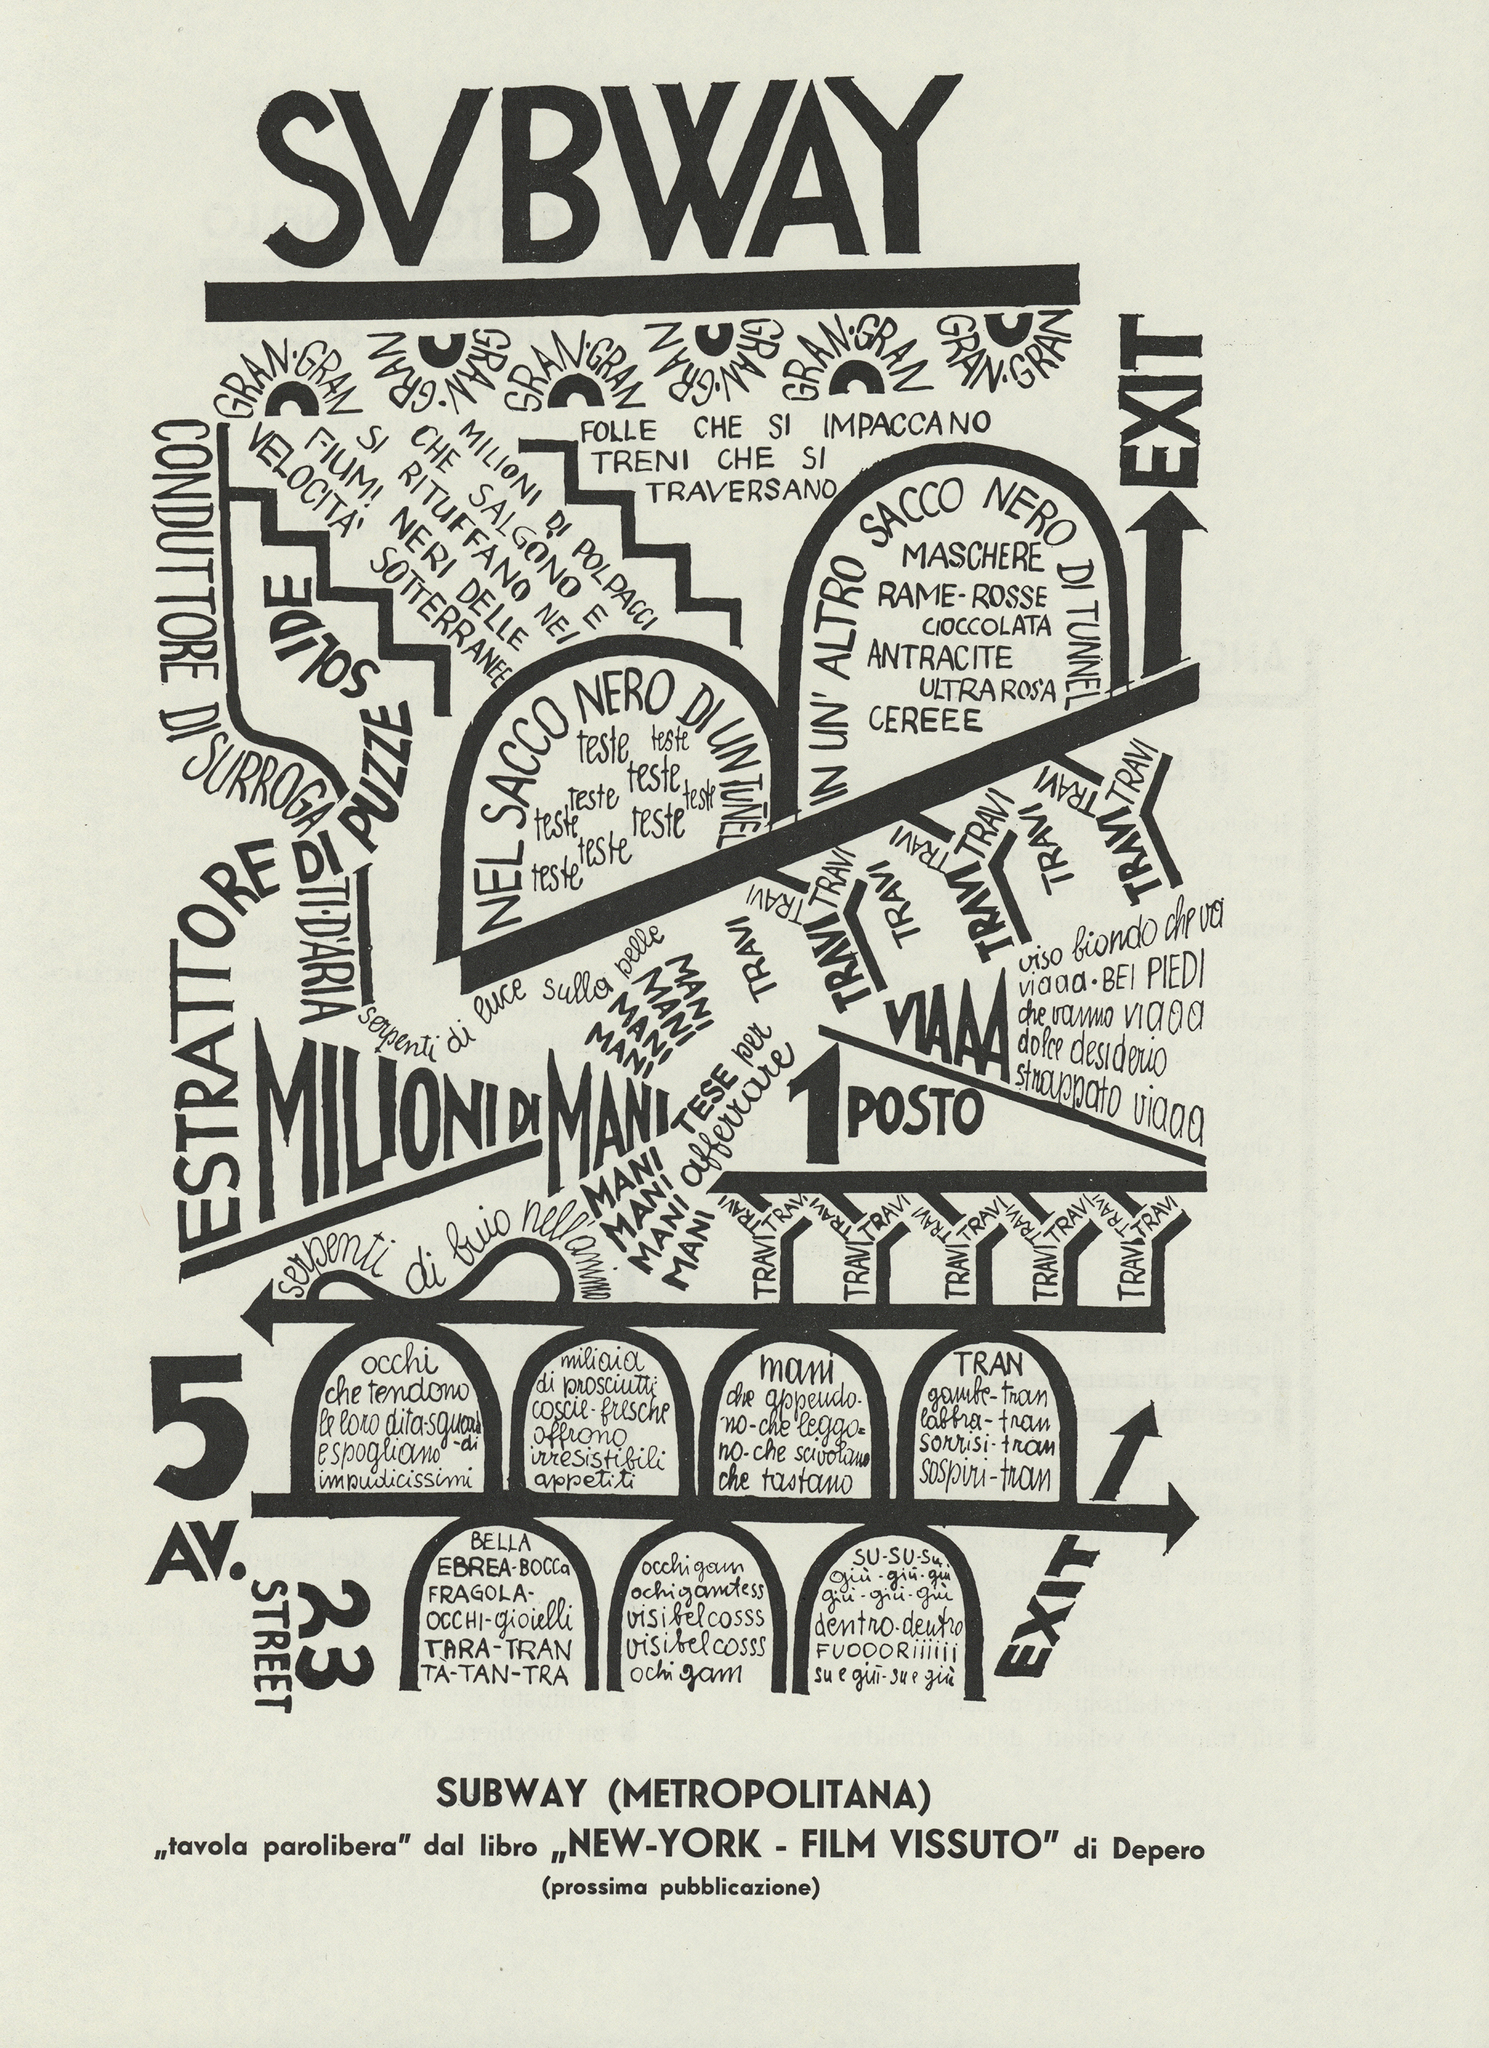 SVBWAY
GRAN·GRAN
GRAN·GRAN
GRAN·GRAN
GRAN·GRAN
GRAN·GRAN
GRAN·GRAN
EXIT
FOLLE CHE SI IMPACCANO
TRENI CHE SI
TRAVERSANO
MILIONI DI POLPACCI
CHE SALGONO E
SI RITUFFANO NEI
FIUMI NERI DELLE
VELOCITA' SOTTERRANEE
CONDUTTORE DI SURROGA
TI·D'ARIA
ESTRATTORE DI PUZZE SOLIDE
IN UN' ALTRO SACCO NERO DI TUNNEL
MASCHERE
RAME-ROSSE
CIOCCOLATA
ANTRACITE
ULTRAROSA
CEREEE
NEL SACCO NERO DI UN TUNNEL
teste teste
teste
teste teste
teste teste
teste
teste
TRAVI TRAVI
TRAVI TRAVI
TRAVI
TRAVI TRAVI
TRAVI
TRAVI
TRAVI TRAVI
TRAVI
TRAVI
serpenti di luce sulla pelle
MANI
MANI
MANI
MANI
MILIONI DI MANI
TESE per
afferrare
MANI
MANI
MANI
MANI
serpenti di buio nell'anima
VIAAA
viso biondo che va
viaaa·BEI PIEDI
che vanno viaaa
dolce desiderio
strappato viaaa
1 POSTO
TRAVI TRAVI TRAVI TRAVI TRAVI TRAVI TRAVI TRAVI TRAVI TRAVI
TRAVI TRAVI TRAVI TRAVI TRAVI
5
AV.
23
STREET
occhi
che tendono
le loro dita-sguardi
e spogliano -di
impudicissimi
miliaia
di prosciutti
coscie-fresche
offrono
irresistibili
appetiti
mani
che appendo-
no-che leggo=
no-che scivolano
che tastano
TRAN
gambe-tran
labbra-tran
sorrisi-tran
sospiri-tran
BELLA
EBREA-BOCCa
FRAGOLA-
OCCHI-gioielli
TARA-TRAN
TÀ-TAN-TRA
occhigam
ochigamtess
visibelcosss
visibelcosss
ochigam
SU-SU-Su
giù-giù-giù
giù-giù-giù
dentro-dentro
FUOOORiiiiii
su e giù-su e giù
EXIT
SUBWAY (METROPOLITANA)
„tavola parolibera" dal libro „NEW-YORK - FILM VISSUTO" di Depero
(prossima pubblicazione)